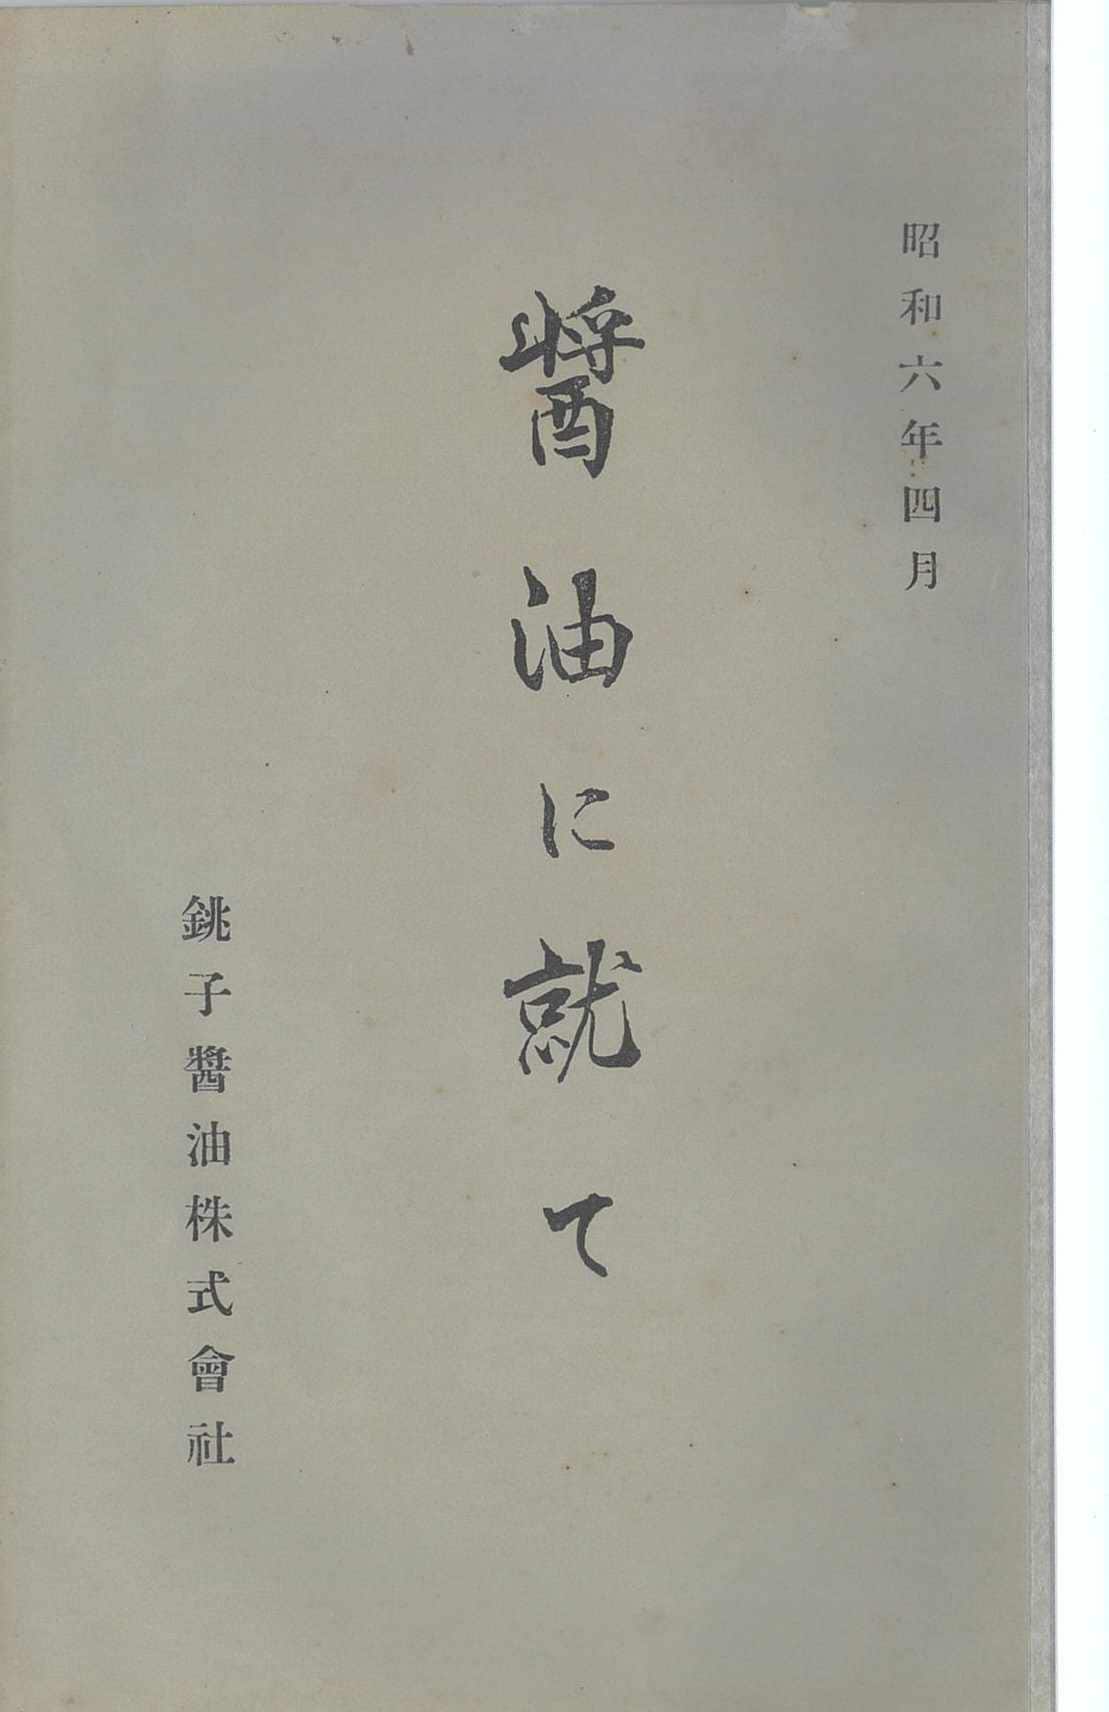 昭和六年四月
醤油に就て
銚子醤油株式會社